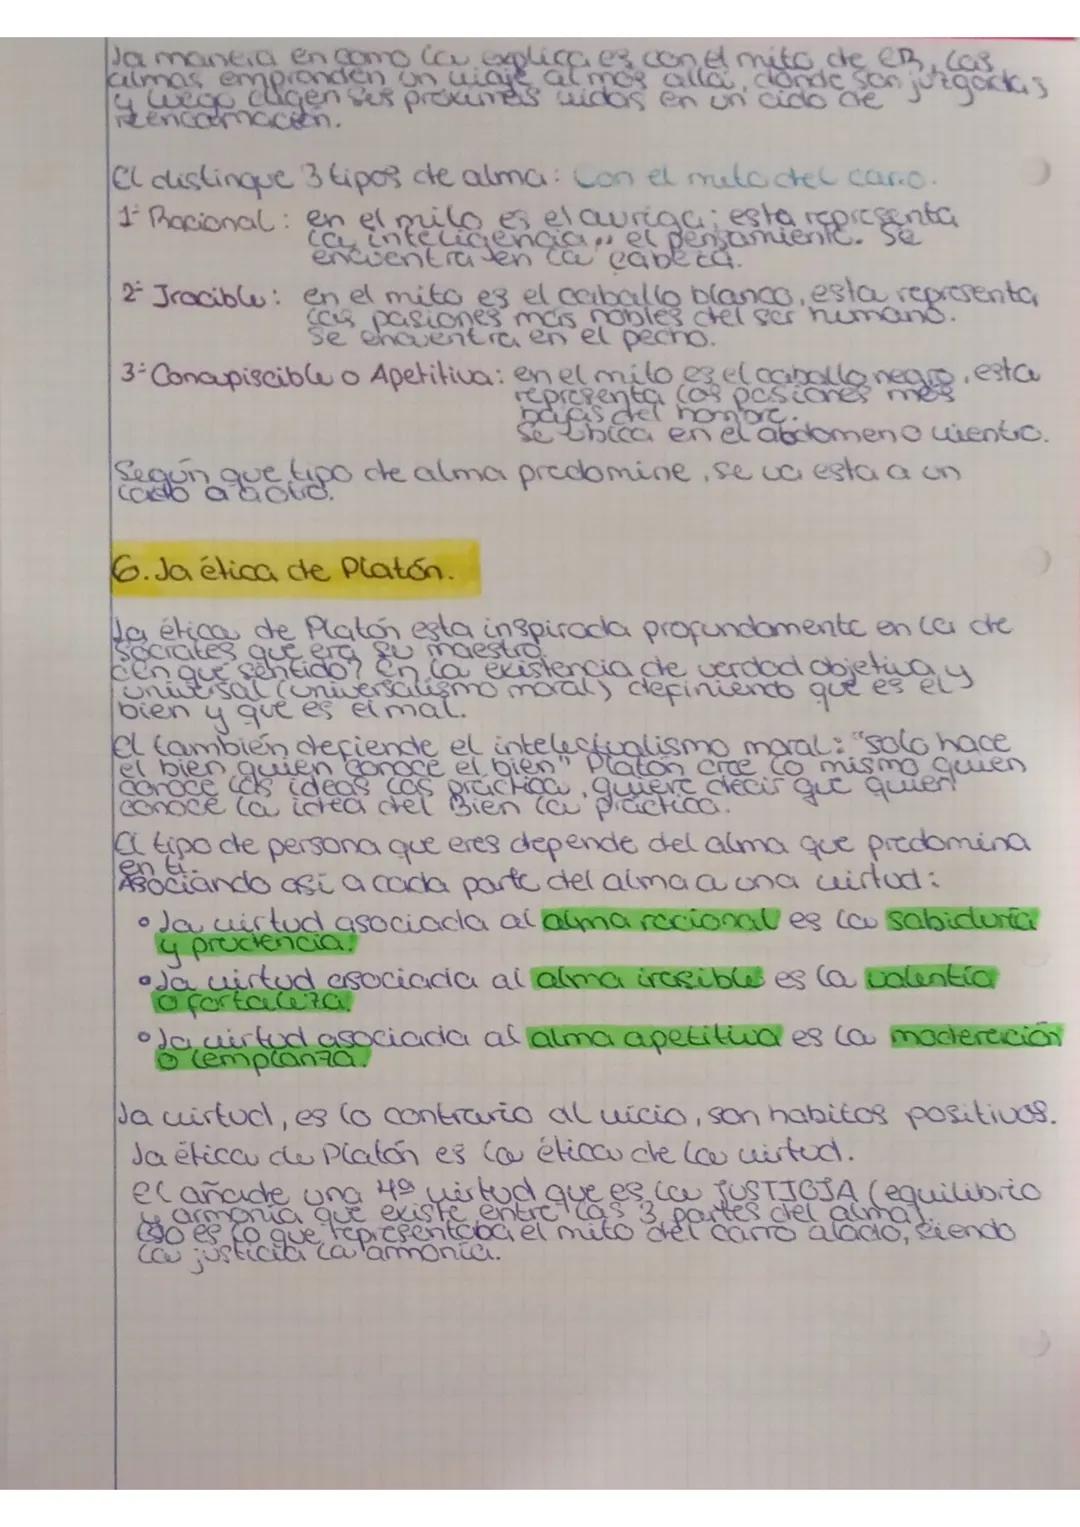 La manera en como la explica es con el mito de ER, las
almas emprenden un viaje al más allá, donde son juzgadas
y luego eligen sus próximas vidas en un ciclo de
reencarnación.
El distingue 3 tipos de alma: Con el mito del carro.
1º Racional: en el mito es el auriga; esta representa
la inteligencia, el pensamiento. Se
encuentra en la cabeza.
2º Iracible: en el mito es el caballo blanco, esta representa
las pasiones más nobles del ser humano.
Se encuentra en el pecho.
3º Concupiscible o Apetitiva: en el mito es el caballo negro, esta
representa las pasiones más
bajas del hombre.
Se ubica en el abdomen o vientre.
Según que tipo de alma predomine, se va esta a un
lado o a otro.
6. La ética de Platón.
La ética de Platón esta inspirada profundamente en la de
Sócrates que era su maestro.
¿En que sentido? En la existencia de verdad objetiva y
universal (universalismo moral) definiendo que es el
bien y que es el mal.
El también defiende el intelectualismo moral: "solo hace
el bien quien conoce el bien" Platón cree lo mismo quien
conoce las ideas las práctica, quiere decir que quien
conoce la idea del Bien la práctica.
El tipo de persona que eres depende del alma que predomina
en ti.
Asociando así a cada parte del alma a una virtud:
• La virtud asociada al alma racional es la sabiduría
y prudencia.
• La virtud asociada al alma irasible es la valentía
o fortaleza.
• La virtud asociada al alma apetitiva es la moderación
o templanza.
La virtud, es lo contrario al vicio, son habitos positivos.
La ética de Platón es la ética de la virtud.
El añade una 4ª virtud que es la JUSTICIA (equilibrio
y armonía que existe entre las 3 partes del alma).
Eso es lo que representaba el mito del carro alado, siendo
la justicia la armonía.